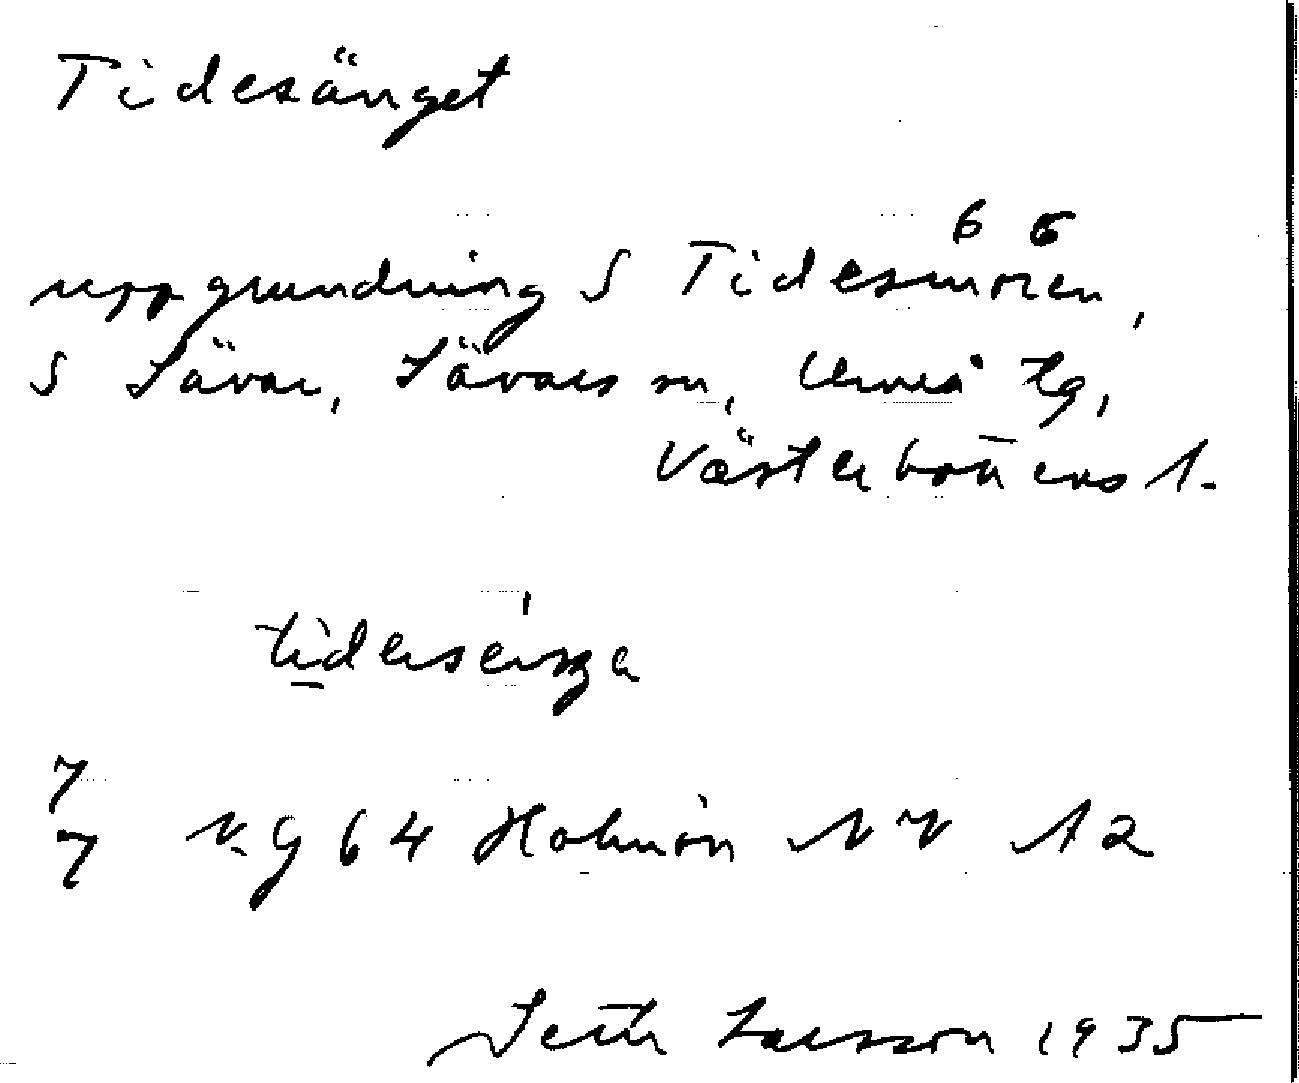 Tidesänget
6 6
uppgrundning S Tidesmoren,
S Sävar, Sävars sn, Umeå tg,
Västerbottens l.
7
7 V. G 64 Holmön NV 12
Seth Larsson 1935